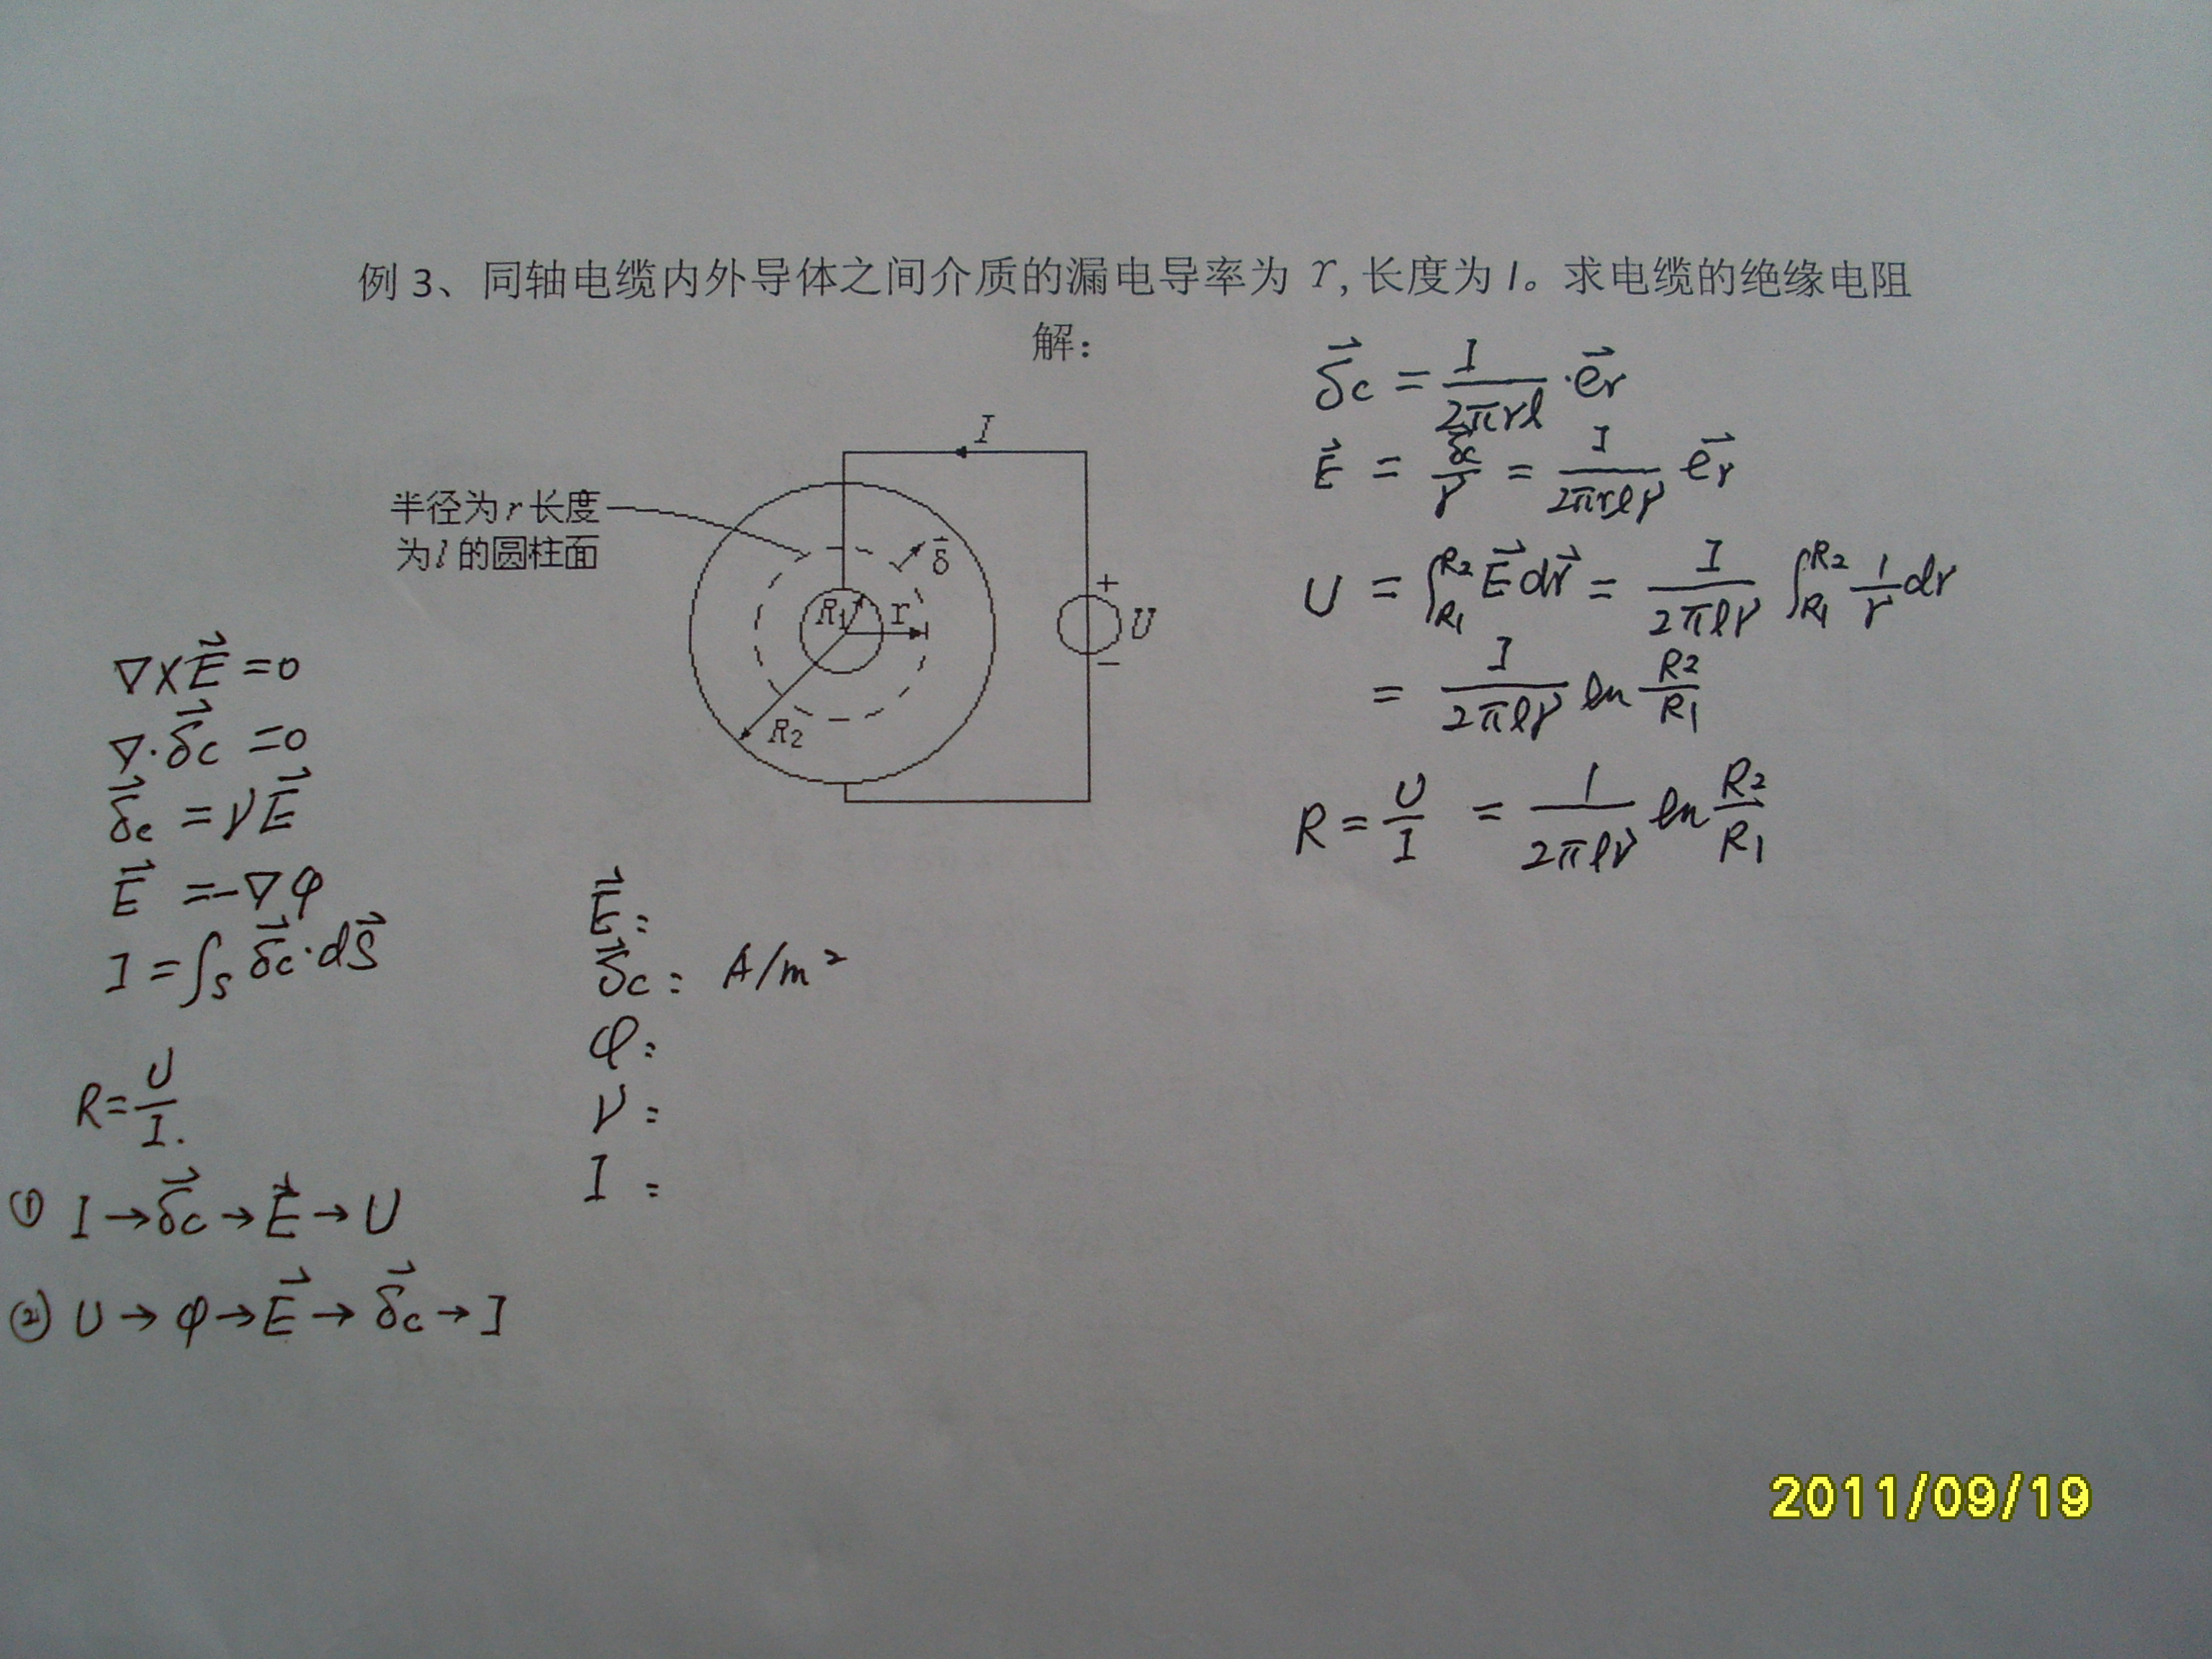 例 3、同轴电缆内外导体之间介质的漏电导率为 γ, 长度为 l。求电缆的绝缘电阻
解:
I
半径为 r 长度
为 l 的圆柱面
δ⃗
R₁
r
R₂
+
U
−
δ⃗c = I/(2πrl) · e⃗r
E⃗ = δ⃗c/γ = I/(2πrlγ) e⃗r
U = ∫_{R1}^{R2} E⃗ dr⃗ = I/(2πlγ) ∫_{R1}^{R2} 1/r dr
= I/(2πlγ) ln R2/R1
R = U/I = 1/(2πlγ) ln R2/R1
∇×E⃗ =0
∇·δ⃗c =0
δ⃗c =γE⃗
E⃗ =-∇φ
I =∫_S δ⃗c·dS⃗
R=U/I.
① I→δ⃗c→E⃗→U
② U→φ→E⃗→δ⃗c→I
E⃗:
δ⃗c: A/m²
φ:
γ:
I:
2011/09/19